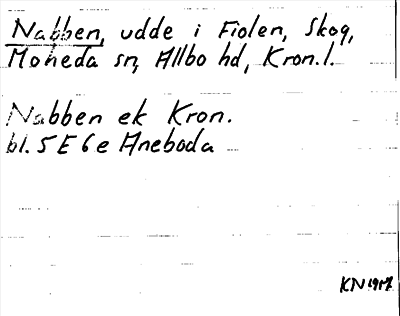 Nabben, udde i Fiolen, Skog,
Moheda sn, Allbo hd, Kron.l.
Nabben ek Kron.
bl. 5 E 6 e Aneboda